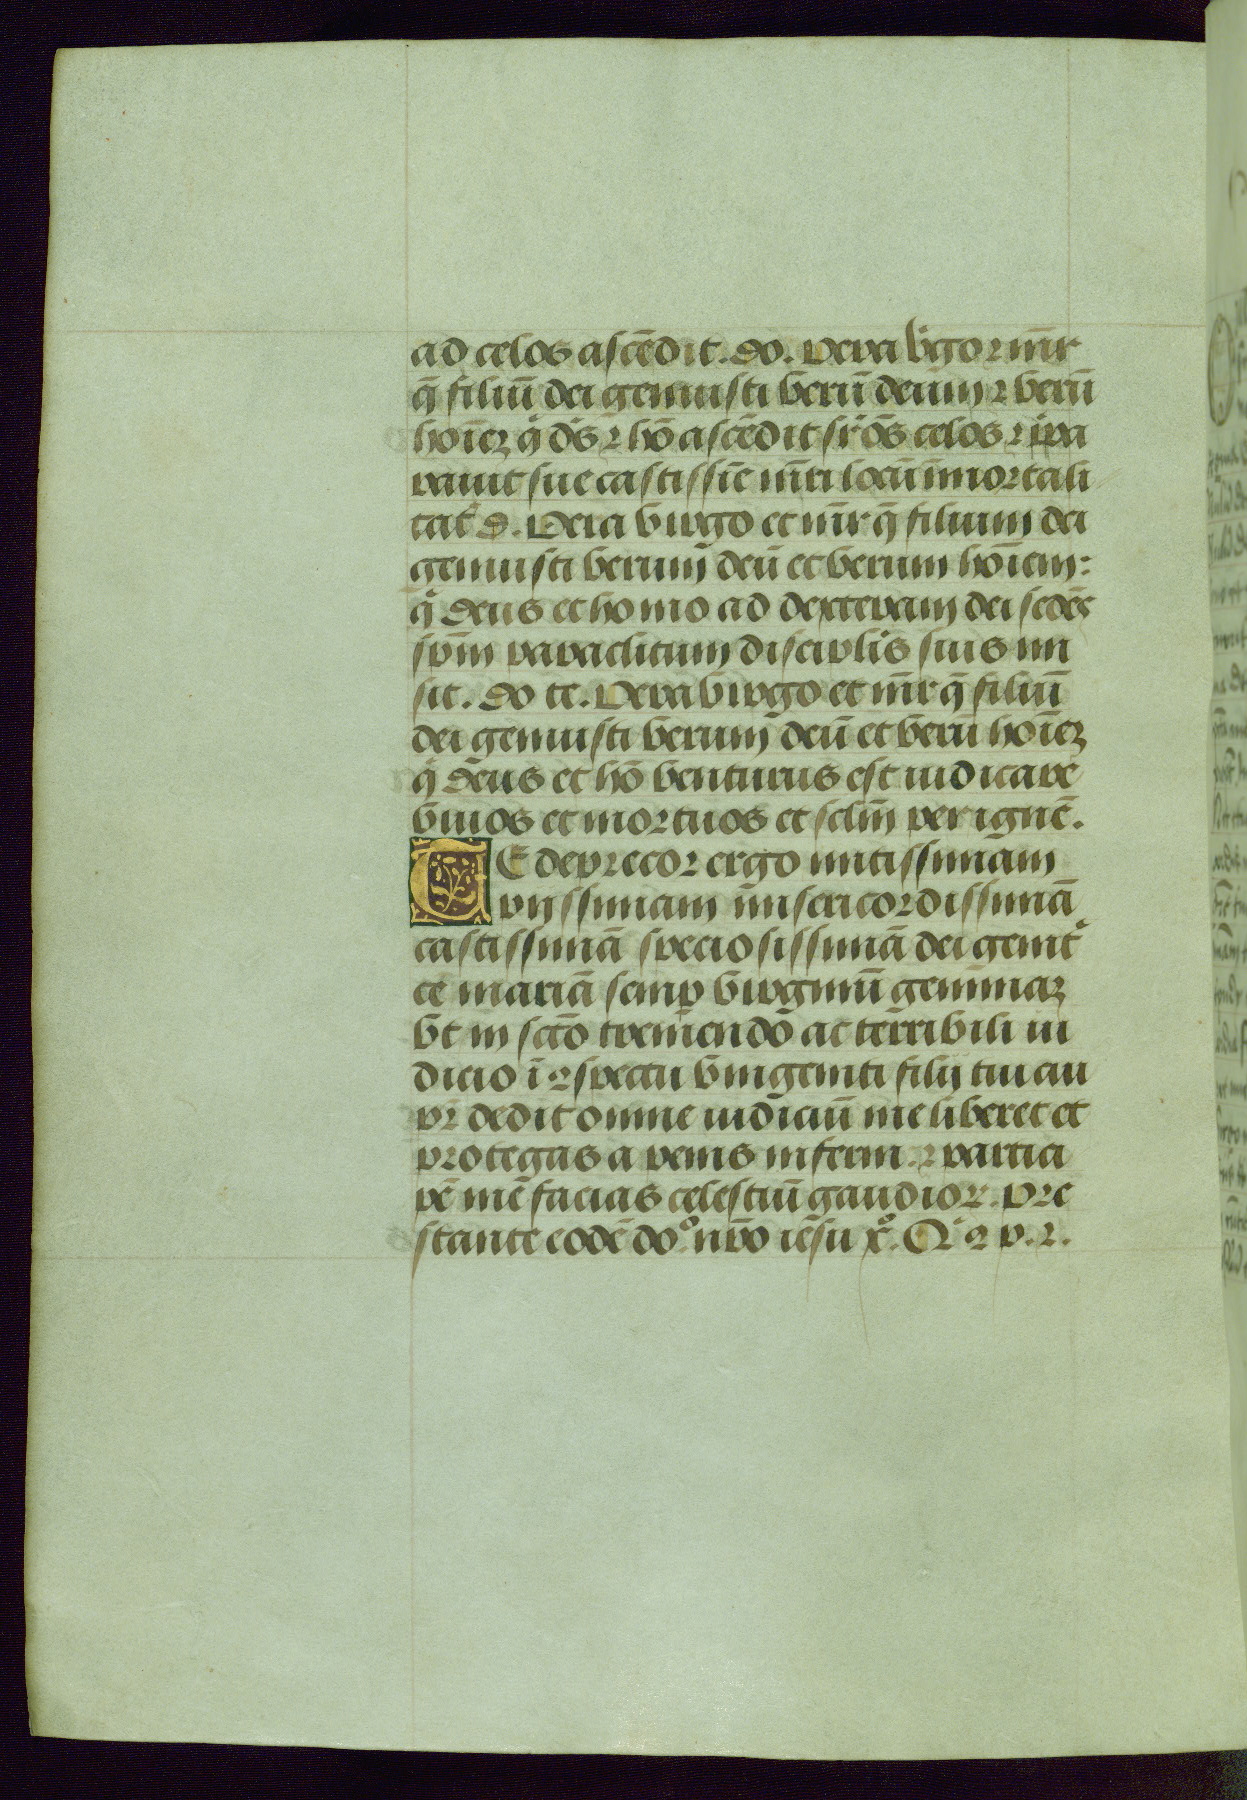 ad celos ascēdit. do. vera v̾go ⁊ mr̄
q̄ filiū dei genuisti verū deum ⁊ verū
hoīeꝫ qͥ dꝰs ⁊ hō ascēdit sr̄ oēs celos ⁊ p̄pa
rauit sue castissīe mr̄i locū īmortali
tat̾ d. Vera virgo et mr̄ q̄ filium dei
genuisti verum deū et verum hoīem:
qͥ deus et homo ad dexteram dei sedēs
spm̄ paraclitum discip̄lis suis mi
sit. do te. Vera virgo et mr̄ q̄ filiū
dei genuisti verum deū et verū hoīeꝫ
qͥ deus et hō venturus est iudicare
viuos et mortuos et sclm̄ per ignē.
TE deprecor ergo mitissimam
pijssimam misericordissimā
castissimā speciosissimā dei genit̾
cē mariā semp̱ virginū gemmaꝫ
vt in sct̄o tremendo ac terribili iu
dicio ī ꝯspectu vnigeniti filij tui cui
pr̄ dedit omne iudiciū me liberet et
protegas a penis inferni ⁊ partici
pē mē facias celestiū gaudioꝝ. Pre
stante eodē doº nr̄o iēsu xº. Qͥ ꝯ p. ⁊.